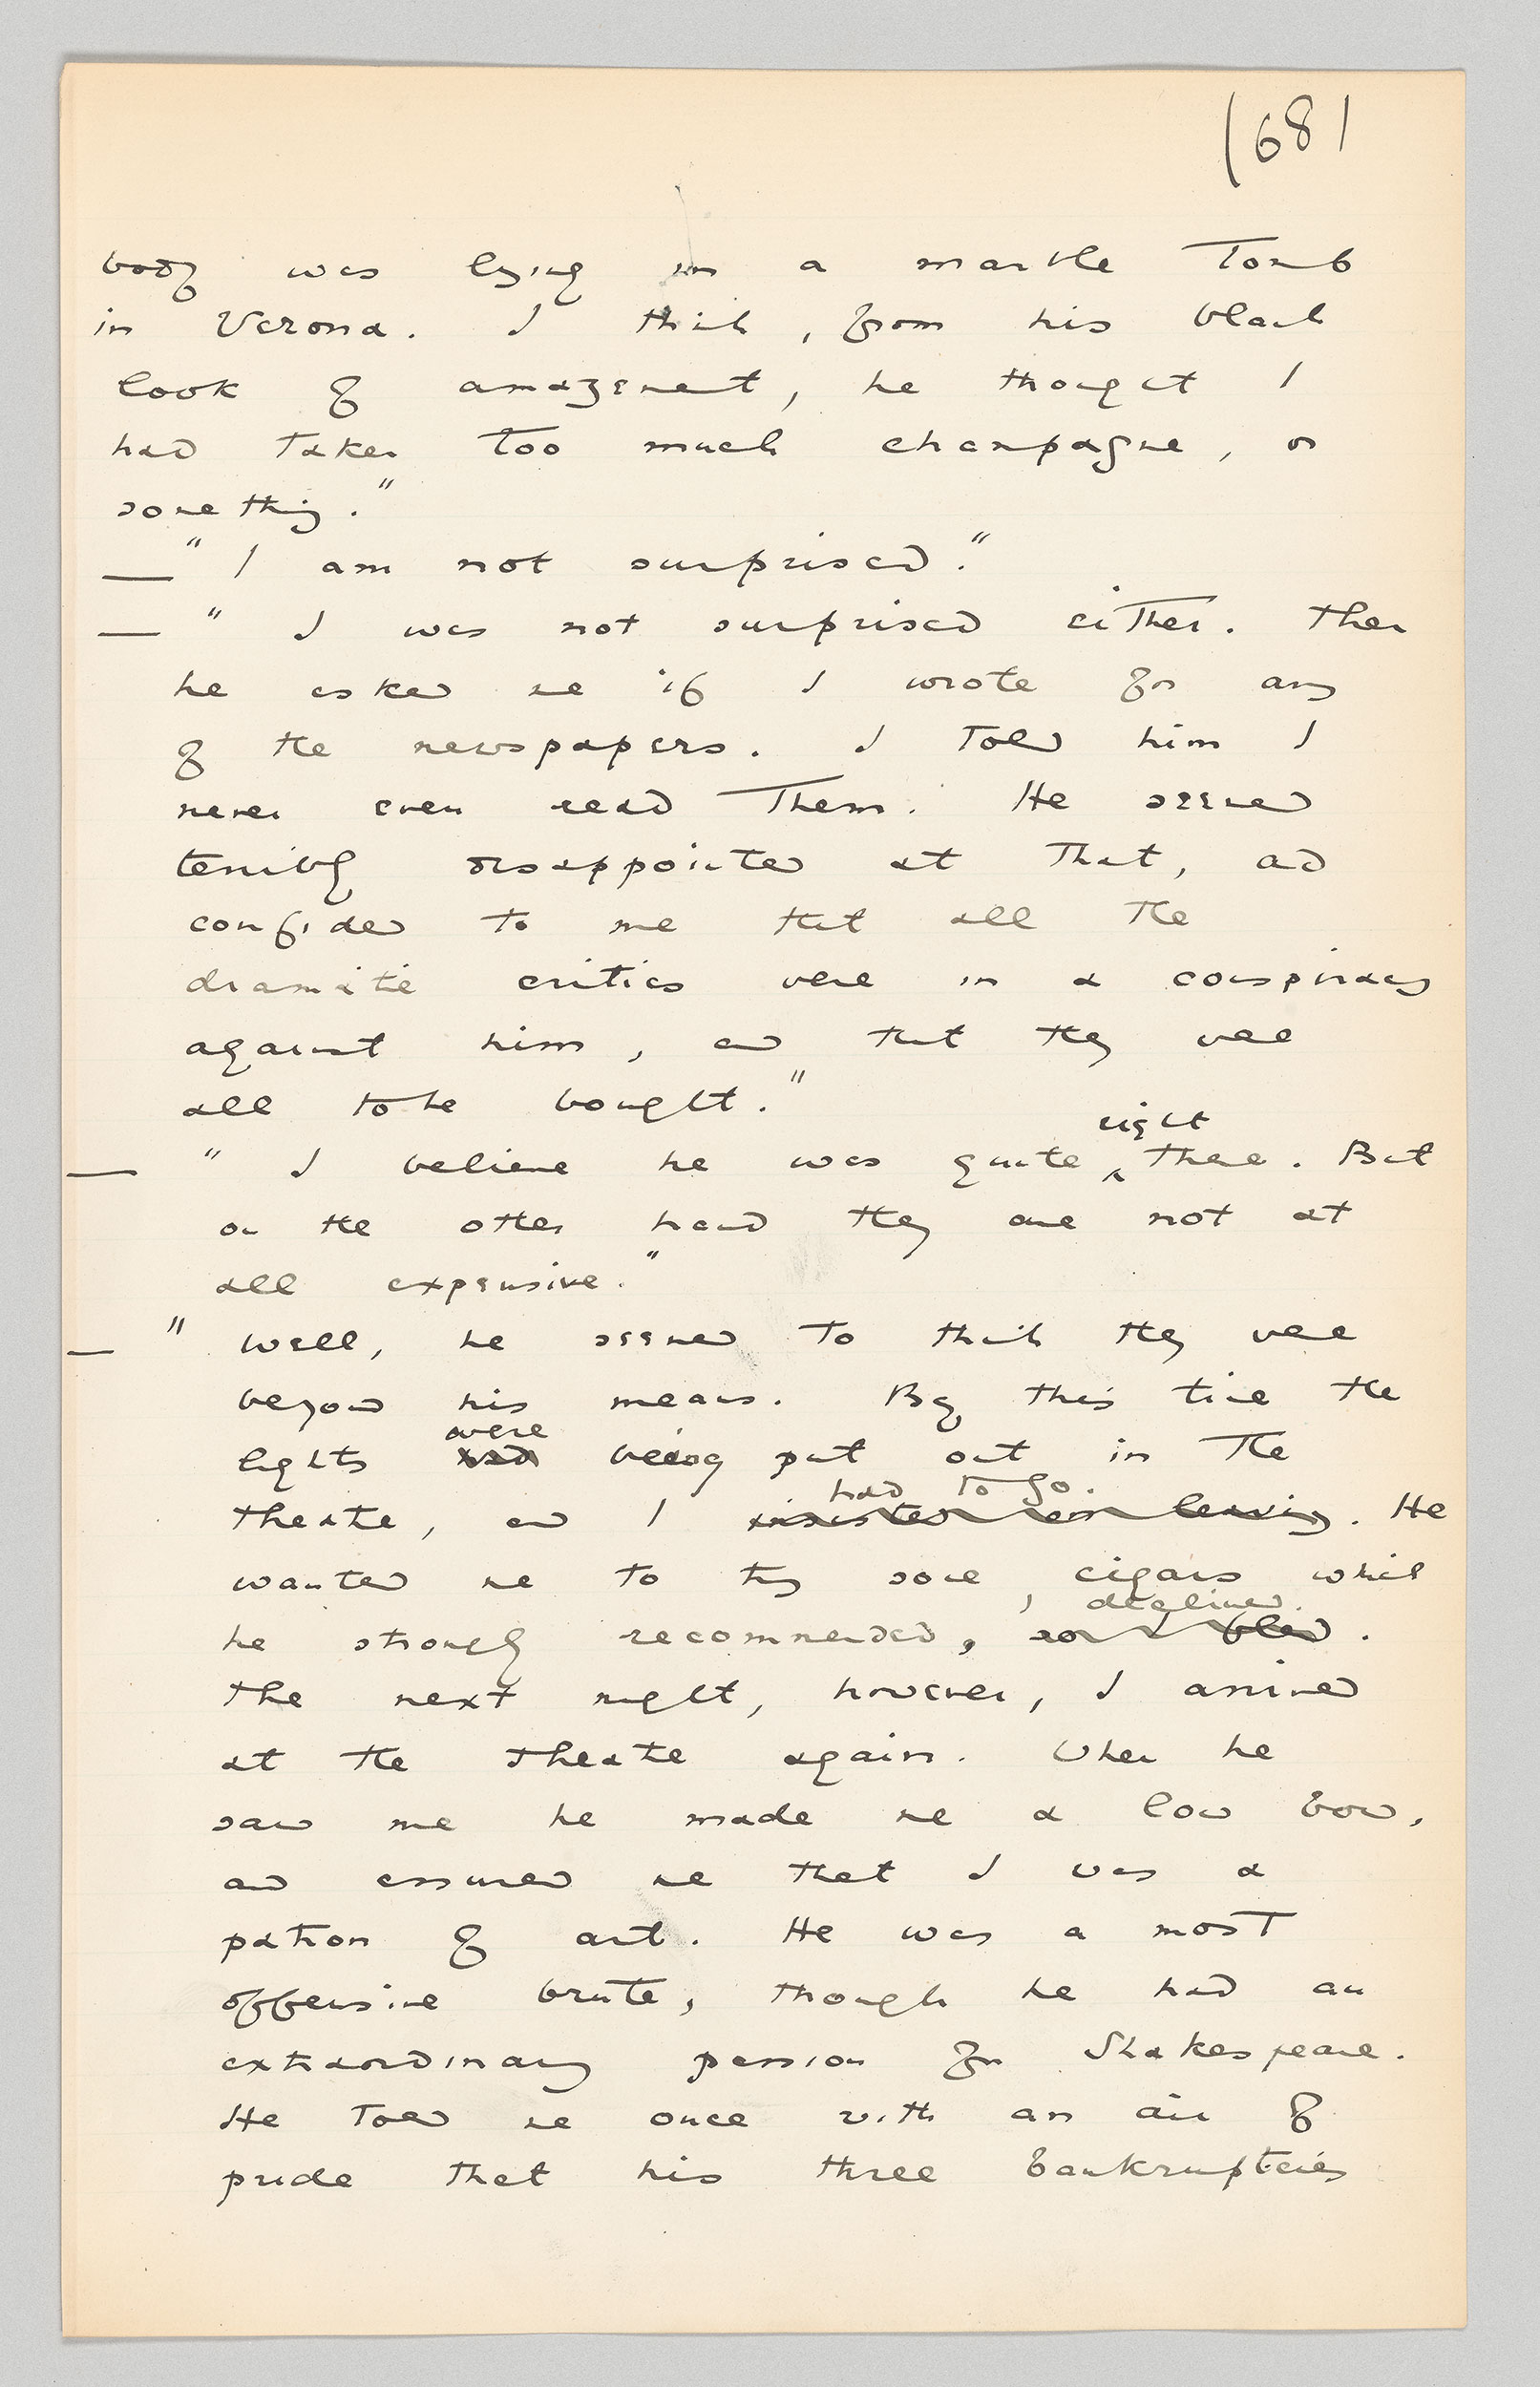 (68)
body was lying in a marble tomb
in Verona. I think, from his blank
look of amazement, he thought I
had taken too much champagne, or
something."
— "I am not surprised."
— "I was not surprised either. Then
he asked me if I wrote for any
of the newspapers. I told him I
never even read them. He seemed
terribly disappointed at that, and
confided to me that all the
dramatic critics were in a conspiracy
against him, and that they were
all to be bought."
right
— "I believe he was quite ^ there. But
on the other hand they are not at
all expensive."
— "Well, he seemed to think they were
beyond his means. By this time the
were
lights had being put out in the
had to go.
theatre, and I insisted on leaving. He
wanted me to try some cigars which
I declined.
he strongly recommended,
The next night, however, I arrived
at the theatre again. When he
saw me he made me a low bow,
and assured me that I was a
patron of art. He was a most
offensive brute, though he had an
extraordinary passion for Shakespeare.
He told me once with an air of
pride that his three bankruptcies